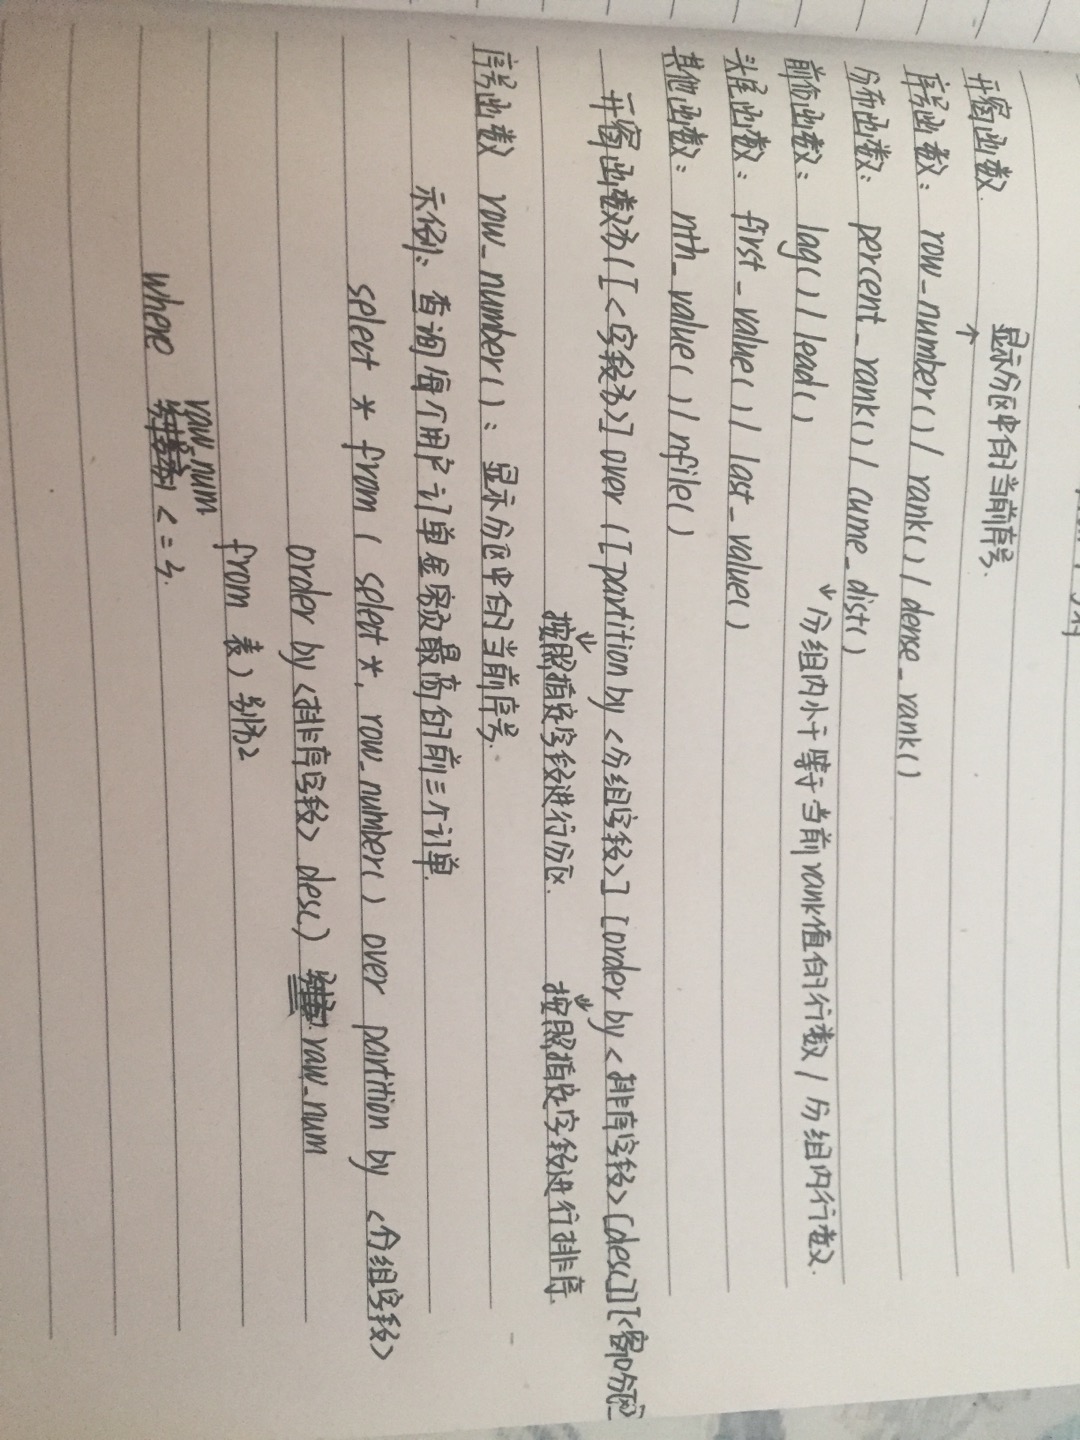 显示分区中的当前序号.
开窗函数.
序号函数: row_number() / rank() / dense_rank()
分布函数: percent_rank() / cume_dist()
分组内小于等于当前rank值的行数 / 分组内行数.
前后函数: lag() / lead()
头尾函数: first_value() / last_value()
其他函数: nth_value() / nfile()
开窗函数为([<字段为>] over ([partition by <分组字段>] [order by <排序字段> [desc]] [<窗口分区
按照指定字段进行分区. 按照指定字段进行排序.
序号函数 row_number(): 显示分区中的当前序号.
示例: 查询每个用户订单金额最高的前三个订单.
select * from ( selet *, row_number() over partition by <分组字段>
order by <排序字段> desc) raw_num
from 表)
raw_num
where <= 3.